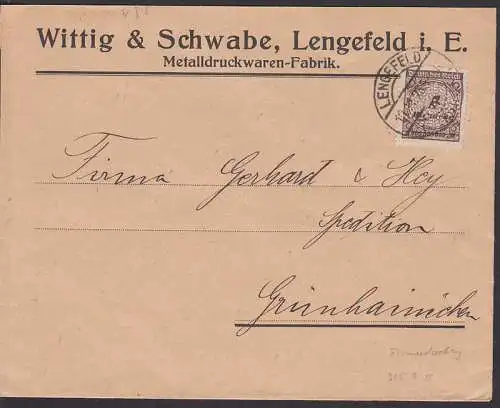 Wittig & Schwabe, Lengefeld i. E.
Metalldruckwaren-Fabrik.
LENGEFELD
Deutsches Reich
Firma Gerhard & Hey
Spedition
Grünhainichen